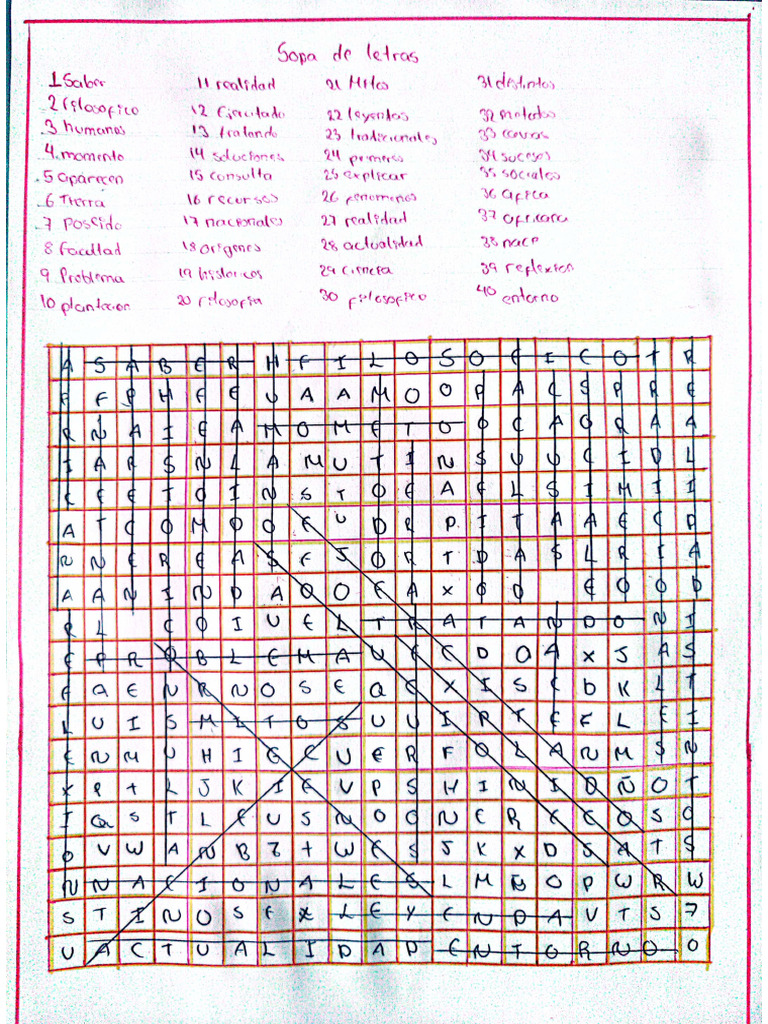 Sopa de letras
1 Saber 11 realidad 21 Mitos 31 distintos
2 filosofico 12 Ejecutado 22 leyendas
3 humanos 13 tratando 23 tradicionales 33 causas
4. momento 14 soluciones 24 primeros 34 sucesos
5 aparecen 15 consulta 25 explicar 35 sociales
6 Tierra 16 recursos 26 fenomenos 36 africa
7 Poseido 17 nacionales 27 realidad 37 africana
8 facultad 18 origenes 28 actualidad 38 nace
9 Problema 19 historicos 29 ciencia 39 reflexion
10 plantacion 20 filosofia 30 filosofico 40 entorno
A S A B E R H F I L O S O F I C O T R
F F P H F E U A A M O O P A C S P R E
R N A I E A M O M E T O O C A O R A A
I A R S N L A M U T I N S U U C I D L
C E E T C I N S T O E A E L S I M I I
A T C O M O O E U D R P I T A A E C D
N N E R E A S F J O R T D A S L R I A
A A N I N D A O O E A X O D E O O D
R L C O I U E L T R A T A N D O N I
E P R O B L E M A U E C D O A X J A S
F Q E N R N O S E Q C X I S E D K L T
L U I S M I T O S U U I R T E F L E I
E N M U H I G C U E R F O L A N M S N
X P T L J K I E V P S H I N I O Ñ O T
I Q S T L E U S N O O N E R E C O S O
O V W A N B Z T W E S J K X D S A T S
N N A C I O N A L E S L M Ñ O P W R W
S T I N O S E X L E Y E N D A V T S 7
U A C T U A L I D A D E N T O R N O O